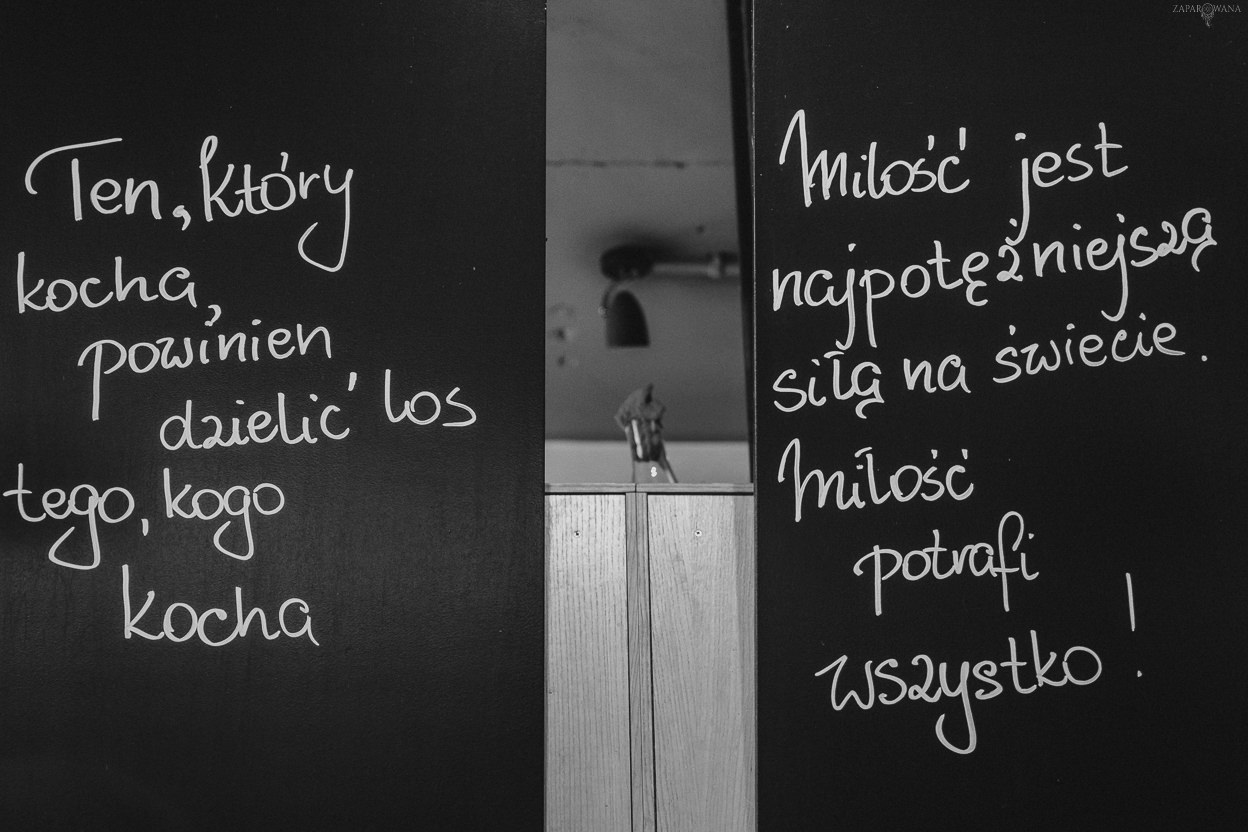 Ten, który
kocha,
powinien
dzielić los
tego, kogo
kocha
Miłość jest
najpotężniejszą
siłą na świecie.
Miłość
potrafi
wszystko!
ZAPAROWANA